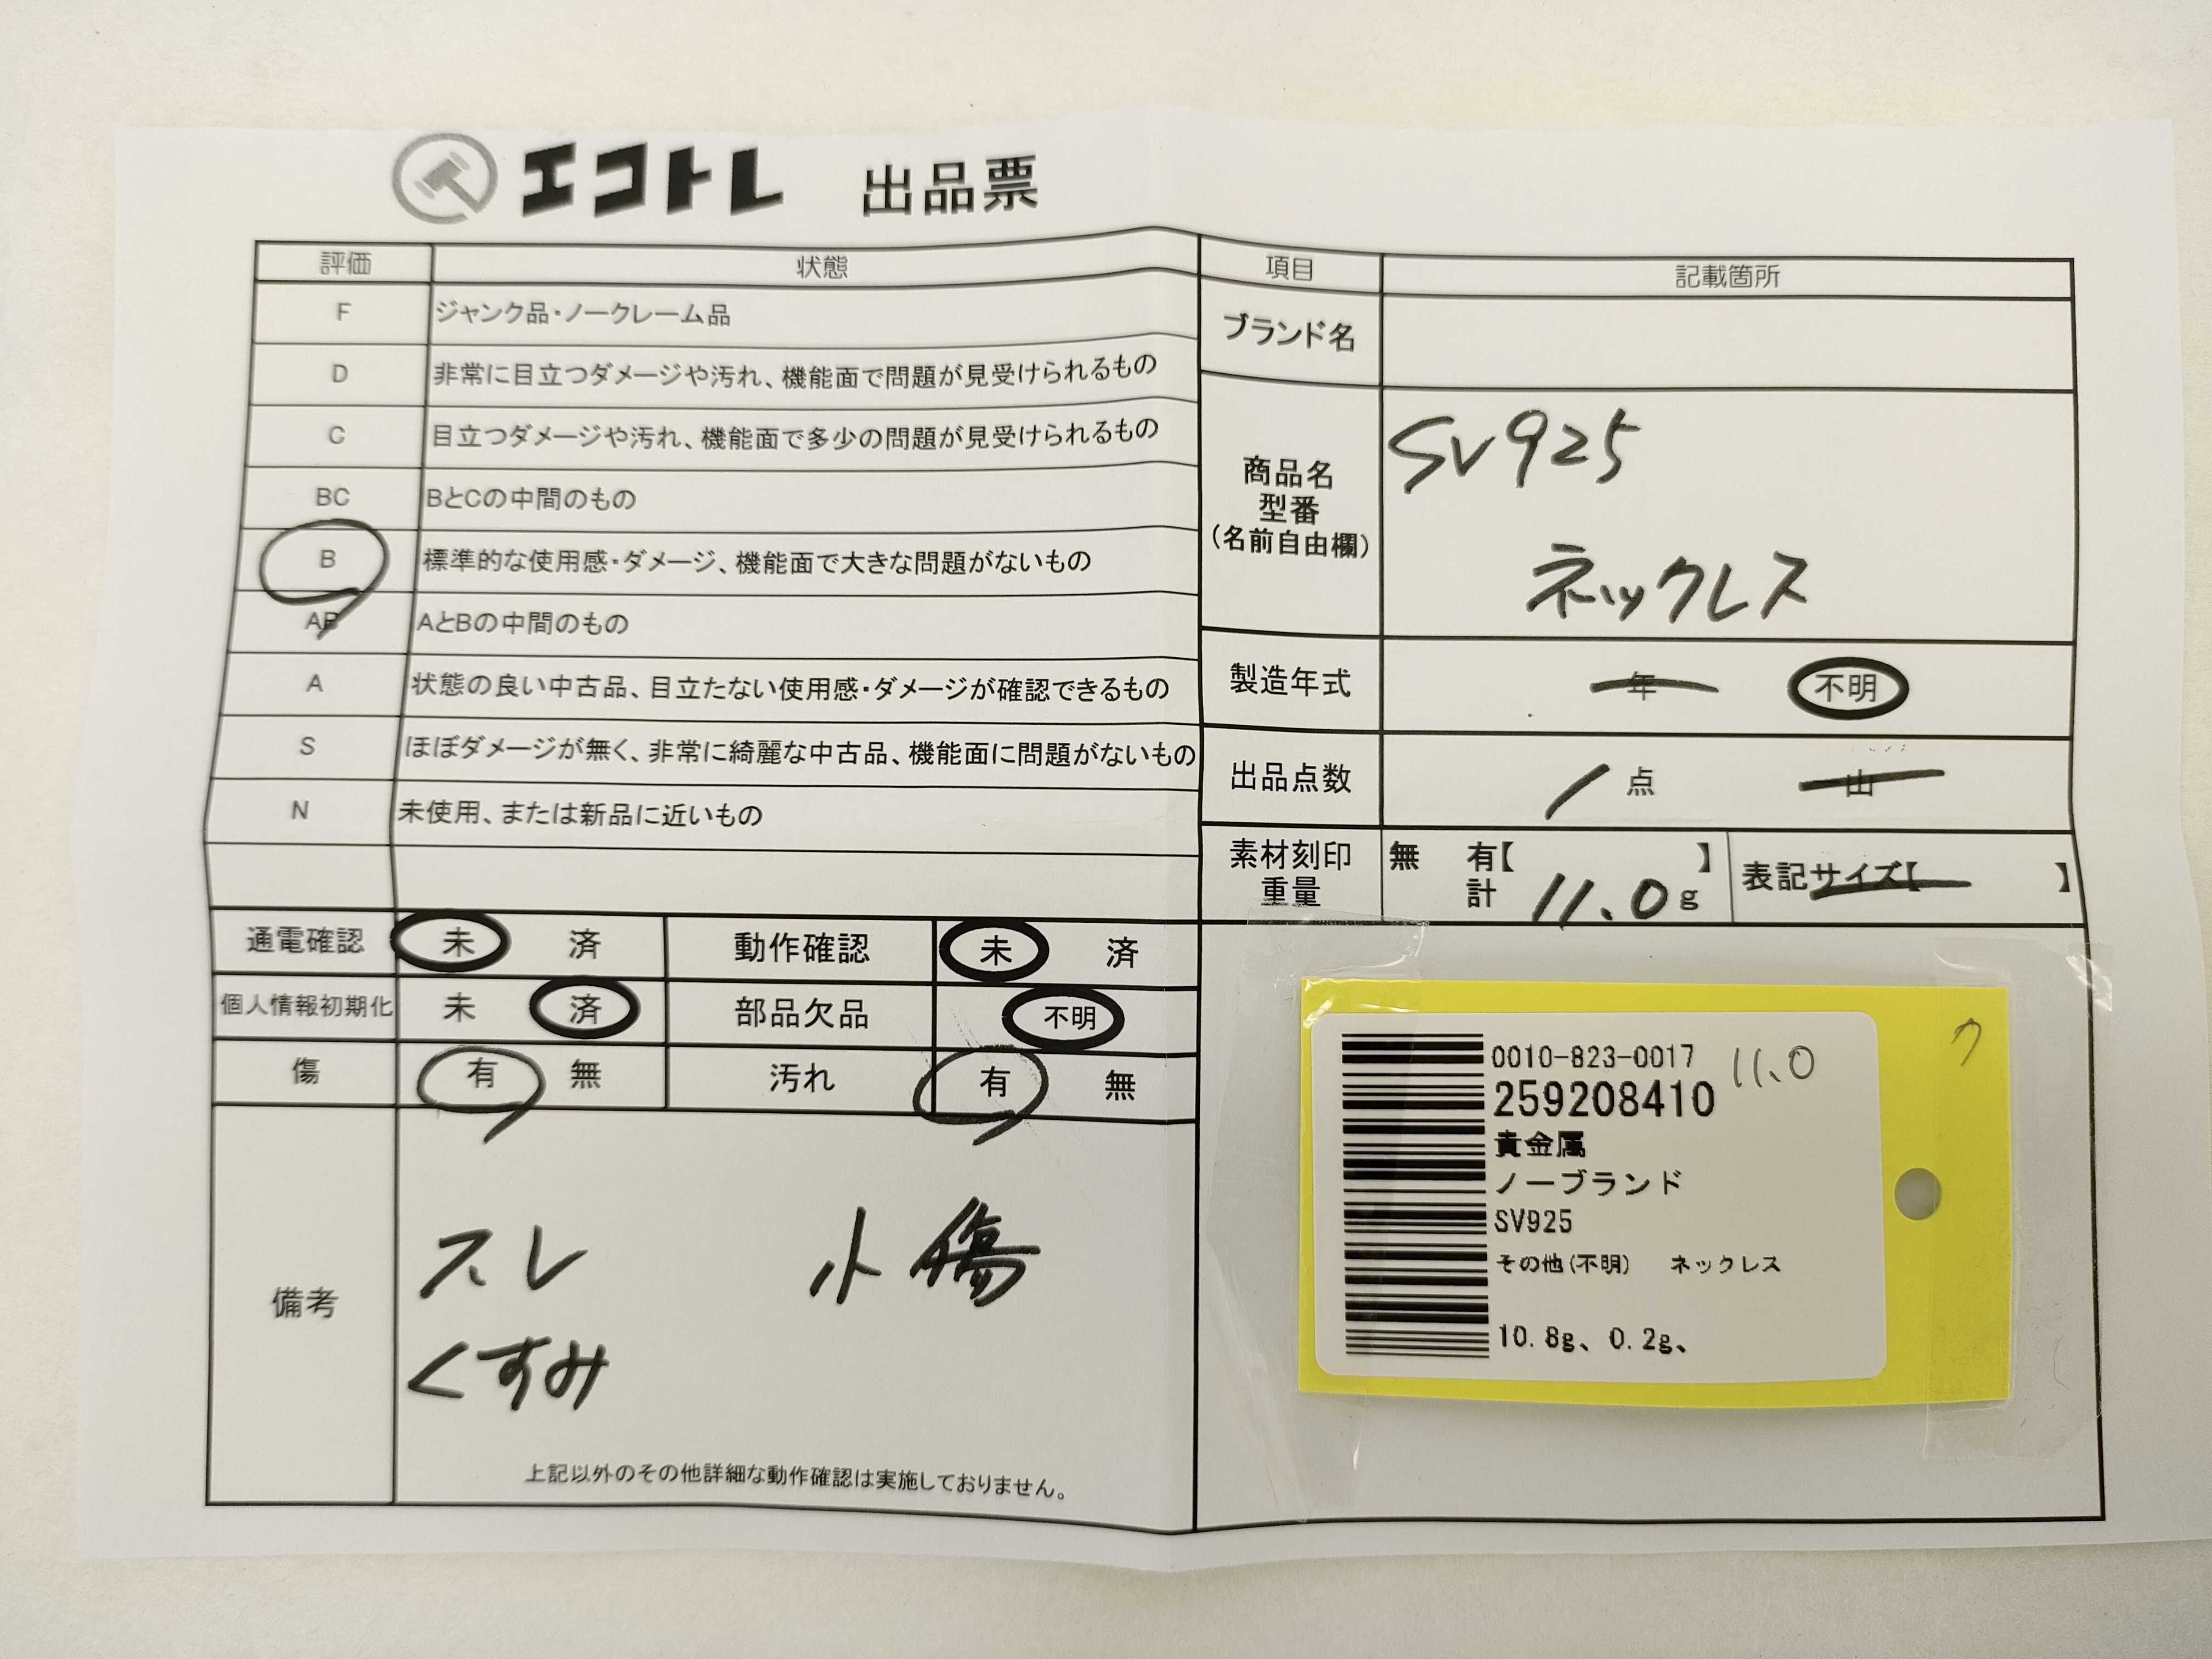 エコトレ 出品票
評価 状態
F ジャンク品・ノークレーム品
D 非常に目立つダメージや汚れ、機能面で問題が見受けられるもの
C 目立つダメージや汚れ、機能面で多少の問題が見受けられるもの
BC BとCの中間のもの
B 標準的な使用感・ダメージ、機能面で大きな問題がないもの
AB AとBの中間のもの
A 状態の良い中古品、目立たない使用感・ダメージが確認できるもの
S ほぼダメージが無く、非常に綺麗な中古品、機能面に問題がないもの
N 未使用、または新品に近いもの
通電確認 未 済 動作確認 未 済
個人情報初期化 未 済 部品欠品 不明
傷 有 無 汚れ 有 無
備考
スレ 小傷
くすみ
上記以外のその他詳細な動作確認は実施しておりません。
項目 記載箇所
ブランド名
商品名
型番
(名前自由欄)
SV925
ネックレス
製造年式 年 不明
出品点数 1点 山
素材刻印 無 有【 】 表記サイズ【 】
重量 計 11.0g
0010-823-0017 11.0
259208410
貴金属
ノーブランド
SV925
その他(不明) ネックレス
10.8g、0.2g、